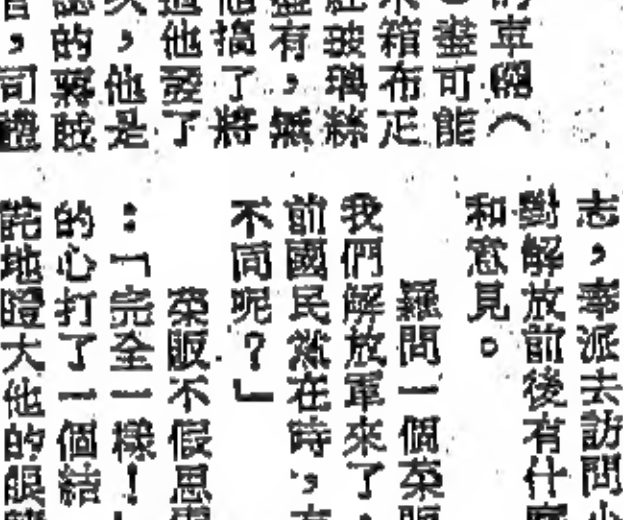 車輛（
盡可能
箱布疋
玻璃絲
有，無
搞了將
他發了
，他是
的蔣賊
，司
志，奉派去訪問
對解放前後有什麼
和意見。
羅問一個菜販
我們解放軍來了，
前國民黨在時，
不同呢？」
菜販不假思
：「完全一樣！
的心打了一個結
詫地瞪大他的眼